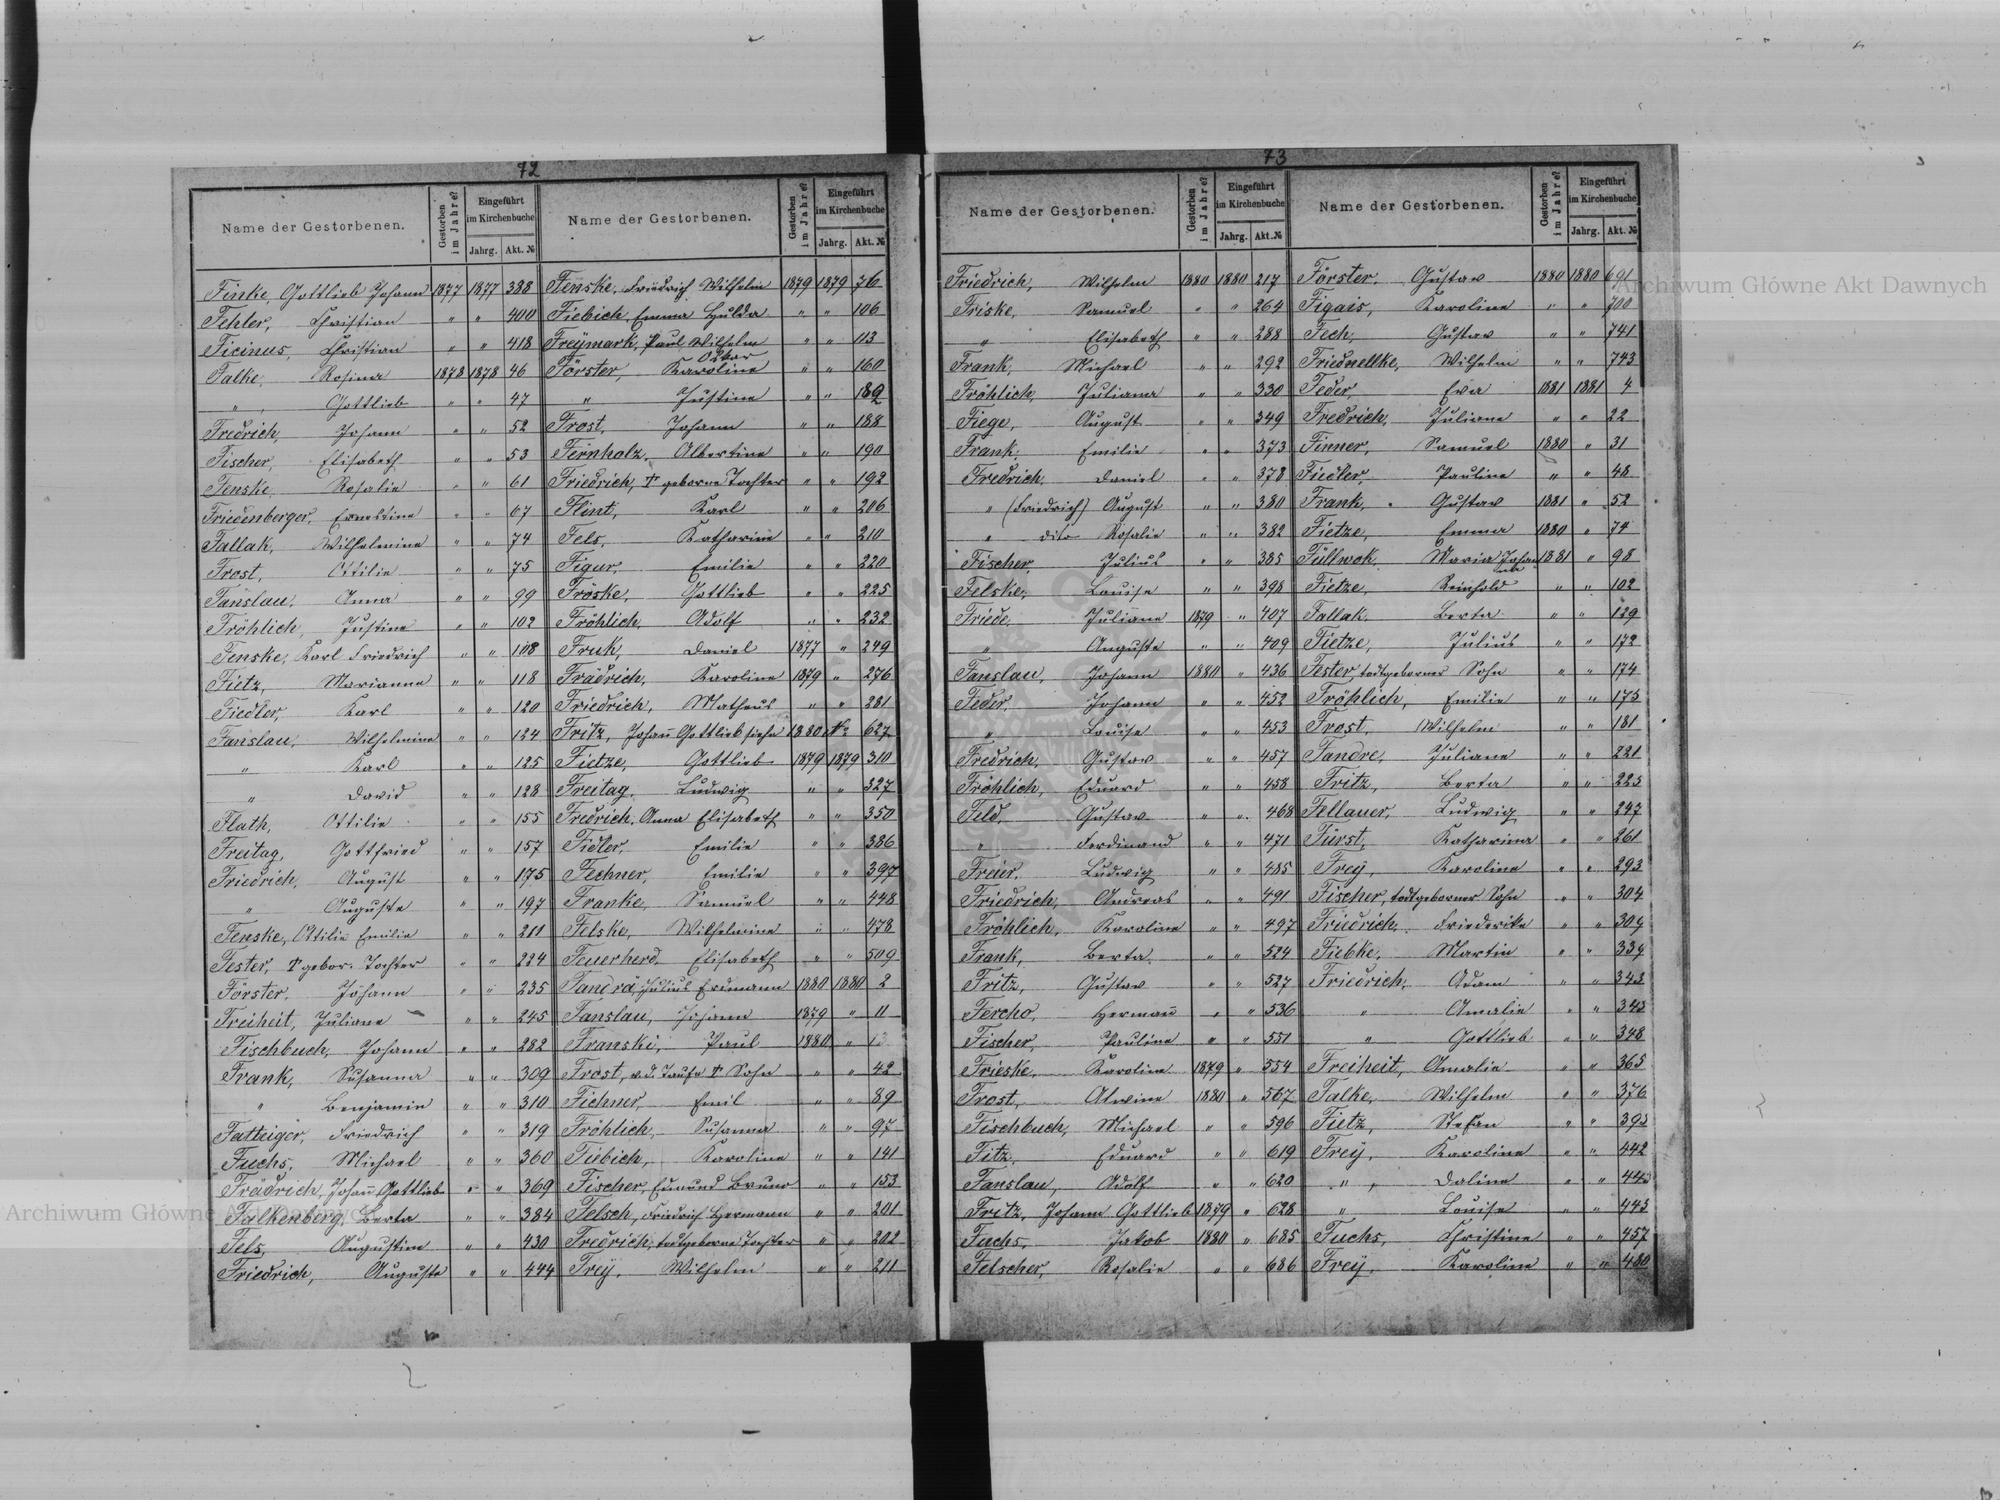 72
Name der Gestorbenen. Gestorben im Jahre? Eingeführt im Kirchenbuche Jahrg. Akt. №
Finke, Gottlieb Johann 1877 1877 388
Fehler, Christian " " 400
Ficinus, Christian " " 418
Falke, Rosina 1878 1878 46
" Gottlieb " " 47
Fredrich, Johann " " 52
Fischer, Elisabeth " " 53
Fenske, Rosalie " " 61
Friedenberger, Ernestine " " 67
Fallak, Wilhelmine " " 74
Frost, Ottilie " " 75
Fanslau, Anna " " 99
Fröhlich, Justine " " 102
Fenske, Karl Friedrich " " 108
Fietz, Marianna " " 118
Fiedler, Karl " " 120
Fanslau, Wilhelmine " " 124
" Karl " " 125
" David " " 128
Flath, Ottilie " " 155
Freitag, Gottfried " " 157
Friedrich, August " " 175
" Auguste " " 197
Fenske, Ottilie Emilie " " 211
Fester, † gebor. Tochter " " 224
Förster, Johann " " 235
Freiheit, Juliane " " 245
Fischbuch, Johann " " 282
Frank, Susanna " " 309
" Benjamin " " 310
Friedrich " " 319
Fuchs, Michael " " 360
Frädrich, Johann Gottlieb " " 369
Falkenberg, Berta " " 384
Fels, Augustine " " 430
Friedrich, Auguste " " 444
Name der Gestorbenen. Gestorben im Jahre? Eingeführt im Kirchenbuche Jahrg. Akt. №
Fenske, Friedrich Wilhelm 1879 1879 76
Fiebich, Emma Hulda " " 106
Freymark, Paul Wilhelm Oskar " " 113
Förster, Karoline " " 160
" Justine " " 182
Frost, Johann " " 188
Fernholz, Albertine " " 190
Friedrich, † geborne Tochter " " 192
Flint, Karl " " 206
Fels, Katharine " " 210
Figur, Emilie " " 220
Fröske, Gottlieb " " 225
Fröhlich, Adolf " " 232
Fruk, Daniel 1877 " 249
Frädrich, Karoline 1879 " 276
Friedrich, Matheus " " 281
Fritz, Johann Gottlieb siehe 1880 № 627
Fietze, Gottlieb 1879 1879 310
Freitag, Ludwig " " 327
Fredrich, Anna Elisabeth " " 350
Fidler, Emilie " " 386
Fechner, Emilie " " 397
Franke, Samuel " " 448
Felske, Wilhelmine " " 478
Feuerherd, Elisabeth " " 509
Fandrä, Julius Erdmann 1880 1880 2
Fanslau, Johann 1879 " 11
Franski, Paul 1880 "
Frost, v.d. Taufe † Sohn " " 42
Fichner, Emil " " 89
Fröhlich, Susanna " " 97
Fiebich, Karoline " " 141
Fischer, Edmund Bruno " " 153
Felsch, Friedrich Hermann " " 201
Fredrich, todtgeborne Tochter " " 202
Frey, Wilhelm " " 211
73
Name der Gestorbenen. Gestorben im Jahre? Eingeführt im Kirchenbuche Jahrg. Akt. №
Friedrich, Wilhelm 1880 1880 217
Friske, Samuel " " 264
" Elisabeth " " 288
Frank, Michael " " 292
Fröhlich, Julianna " " 330
Fiege, August " " 349
Frank, Emilie " " 373
Fredrich, Daniel " " 378
" (Friedrich) August " " 380
" dito Rosalie " " 382
Fischer, Julius " " 385
Felske, Louise " " 398
Friede, Juliane 1879 " 407
" Auguste " " 409
Fanslau, Johann 1880 " 436
Feder, Johann " " 452
" Louise " " 453
Fredrich, Gustav " " 457
Fröhlich, Eduard " " 458
Feld, Gustav " " 468
" Ferdinand " " 471
Freier, Ludwig " " 485
Friedrich, Andreas " " 491
Fröhlich, Karoline " " 497
Frank, Berta " " 524
Fritz, Gustav " " 527
Fercho, Hermann " " 536
Fischer, Pauline " " 551
Frieske, Karoline 1879 " 554
Frost, Alwine 1880 " 567
Fischbuch, Michael " " 596
Fitz, Eduard " " 619
Fanslau, Adolf " " 620
Fritz, Johann Gottlieb 1879 " 628
Fuchs, Jakob 1880 " 685
Felscher, Rosalie " " 686
Name der Gestorbenen. Gestorben im Jahre? Eingeführt im Kirchenbuche Jahrg. Akt. №
Förster, Gustav 1880 1880 691
Figais, Karoline " " 700
Fech, Gustav " " 741
Wilhelm " " 743
Feder, Eva 1881 1881 4
Fredrich, Juliane " " 22
Finner, Samuel 1880 " 31
Fiedler, Pauline " " 48
Frank, Gustav 1881 " 52
Fietze, Emma 1880 " 74
Füllwok, Maria Johanna 1881 " 98
Fietze, Reinhold " " 102
Fallak, Berta " " 129
Fietze, Julius " " 172
Fester, todtgeborner Sohn " " 174
Fröhlich, Emilie " " 175
Frost, Wilhelm " " 181
Fandre, Juliane " " 221
Fritz, Berta " " 225
Fellauer, Ludwig " " 247
Fürst, Katharina " " 261
Frey, Karoline " " 293
Fischer, todtgeborner Sohn " " 304
Friedrich, Friederike " " 309
Fiebke, Martin " " 339
Friedrich, Adam " " 343
" Amalie " " 345
" Gottlieb " " 348
Freiheit, Amalie " " 365
Falke, Wilhelm " " 376
Fietz, Stefan " " 395
Frey, Karoline " " 442
" Daline " "
" Louise " " 445
Fuchs, Christine " " 457
Frey, Karoline " " 480
Archiwum Główne Akt Dawnych
Archiwum Główne Akt Dawnych